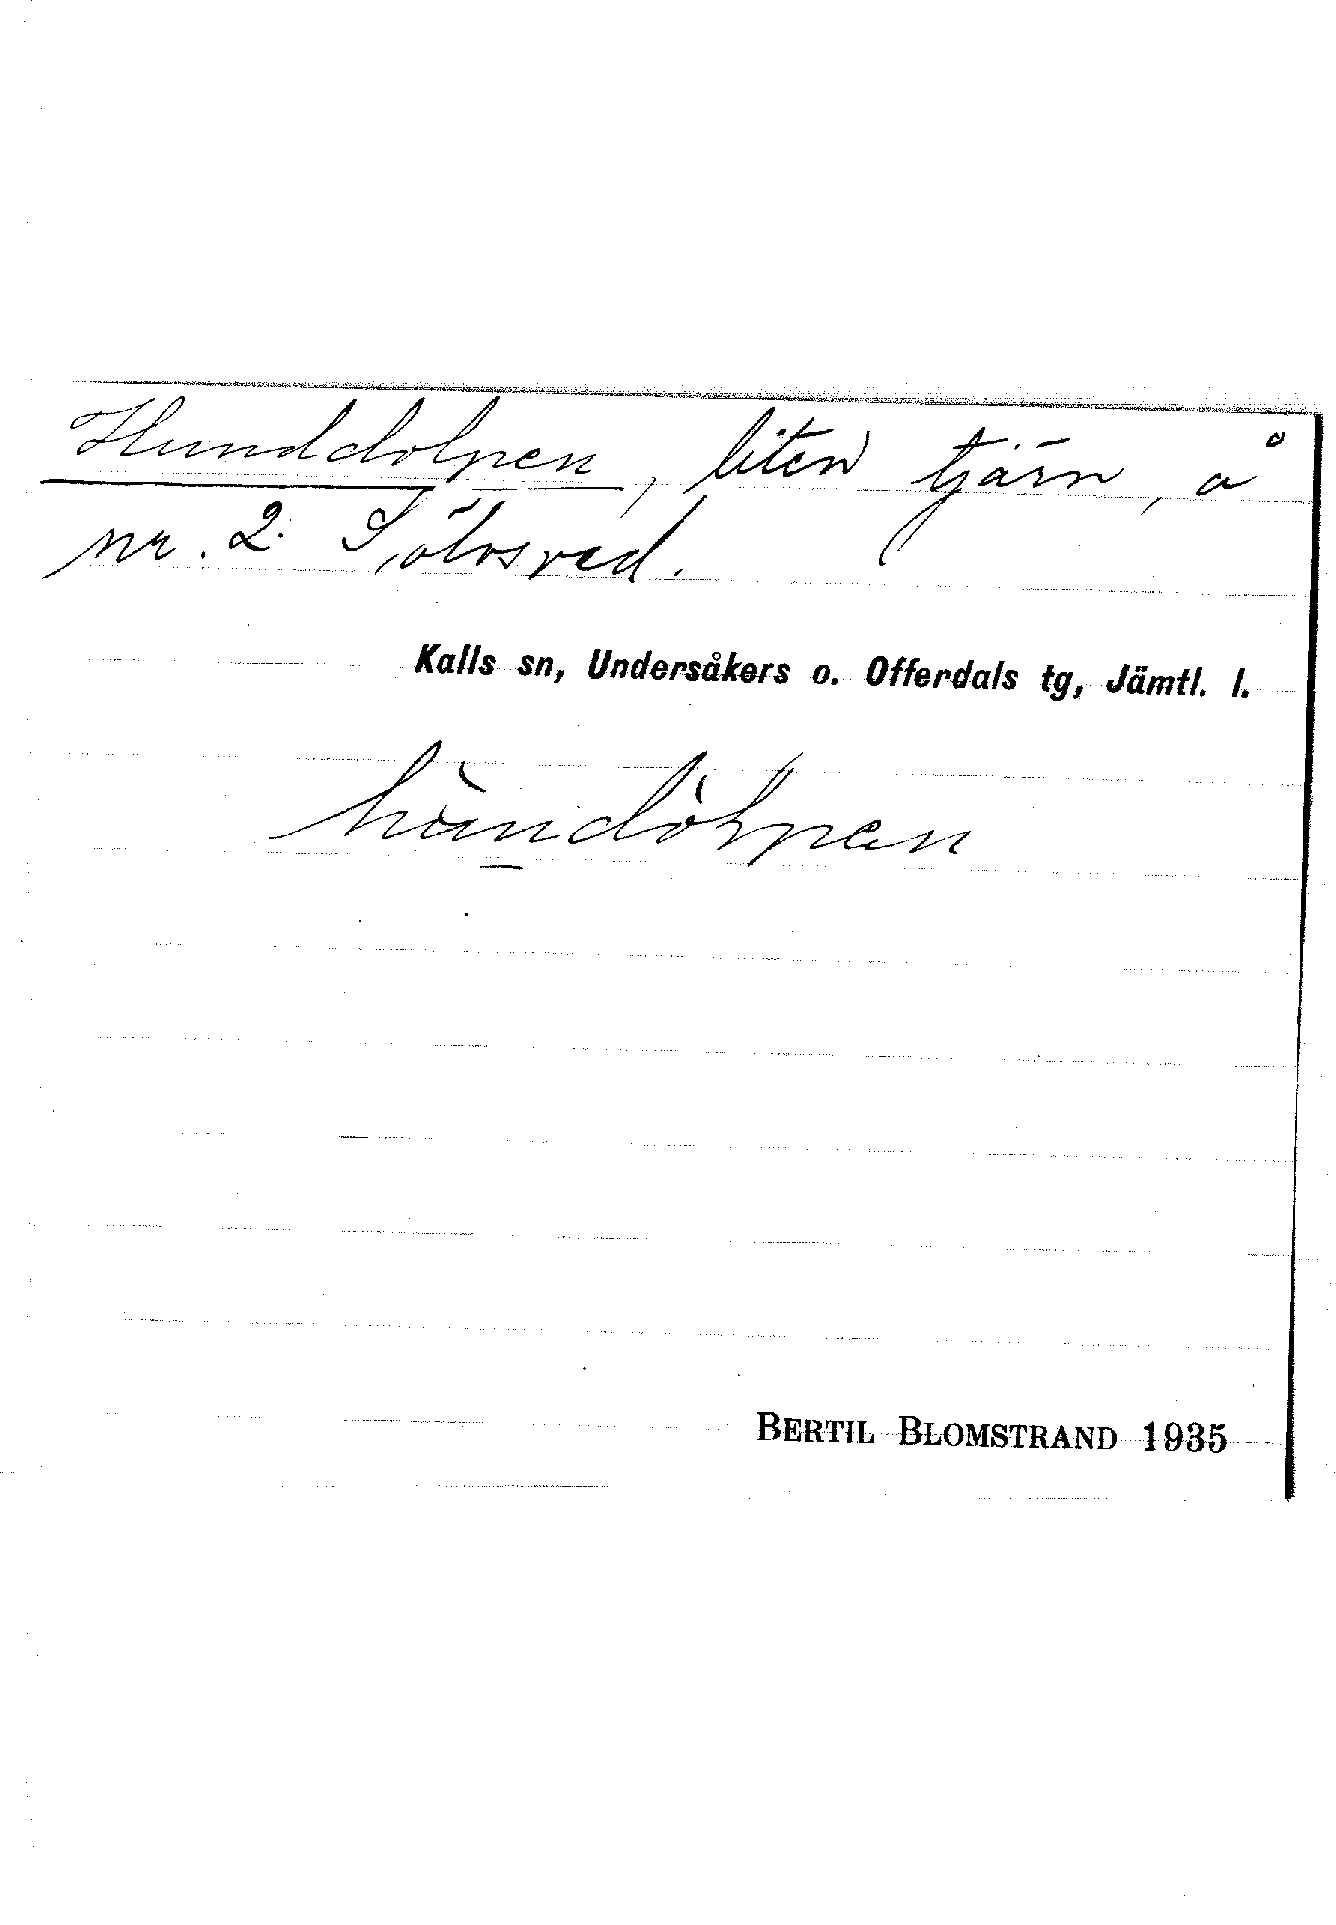 Hunddolpen, liten tjärn, å
nr. 2 Sölvsved.
Kalls sn, Undersåkers o. Offerdals tg, Jämtl. l.
BERTIL BLOMSTRAND 1935